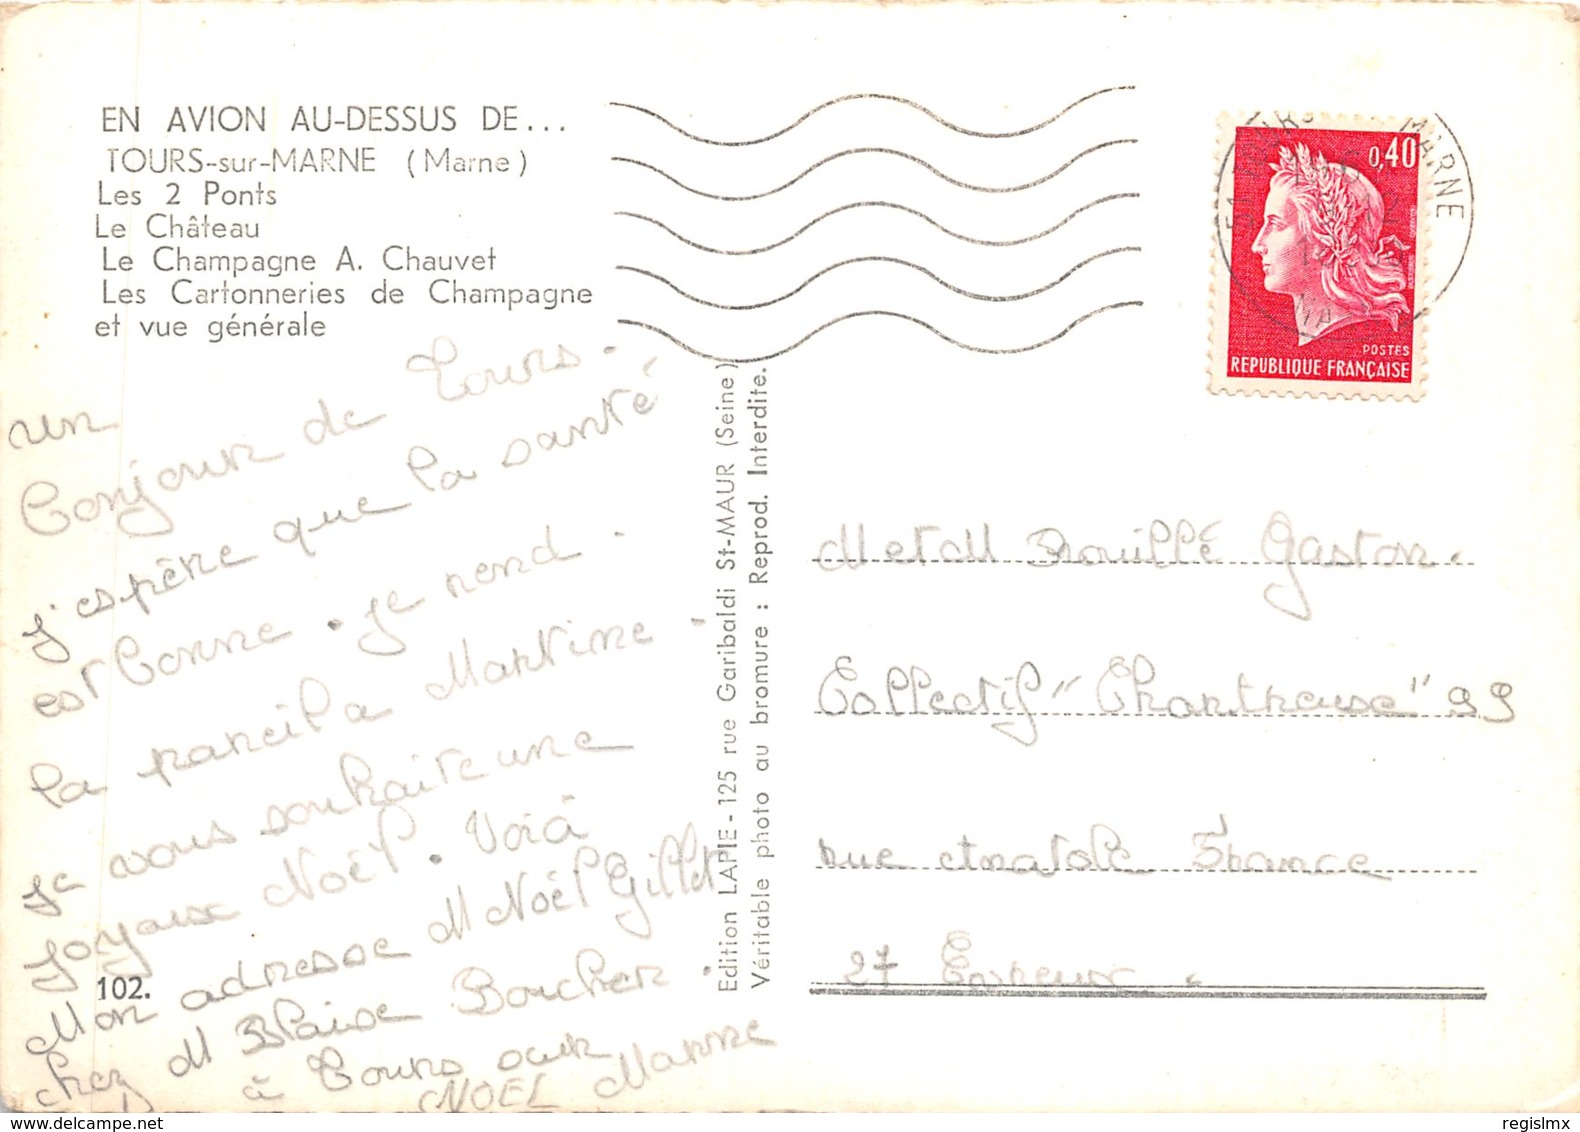 EN AVION AU-DESSUS DE...
TOURS-sur-MARNE (Marne)
Les 2 Ponts
Le Château
Le Champagne A. Chauvet
Les Cartonneries de Champagne
et vue générale
un
bonjour de Tours.
j'espère que la santé
est bonne. je rend.
la pareil a Martine.
je vous souhaite une
joyaux Noël. Voià
Mon adresse M Noël Gillet
chez M Blaise Boucher.
à Tours sur
Marne
NOEL
102.
Edition LAPIE - 125 rue Garibaldi St-MAUR (Seine)
Véritable photo au bromure : Reprod. Interdite.
0,40
POSTES
REPUBLIQUE FRANÇAISE
MARNE
M et M Rouillé Gaston.
Collectif "Chartreuse" 99
rue Anatole France
27 Evreux.
regislmx